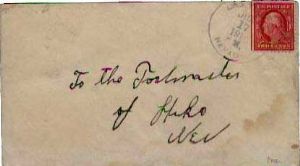 U.S. POSTAGE
To the Postmaster
of Elko
Nev